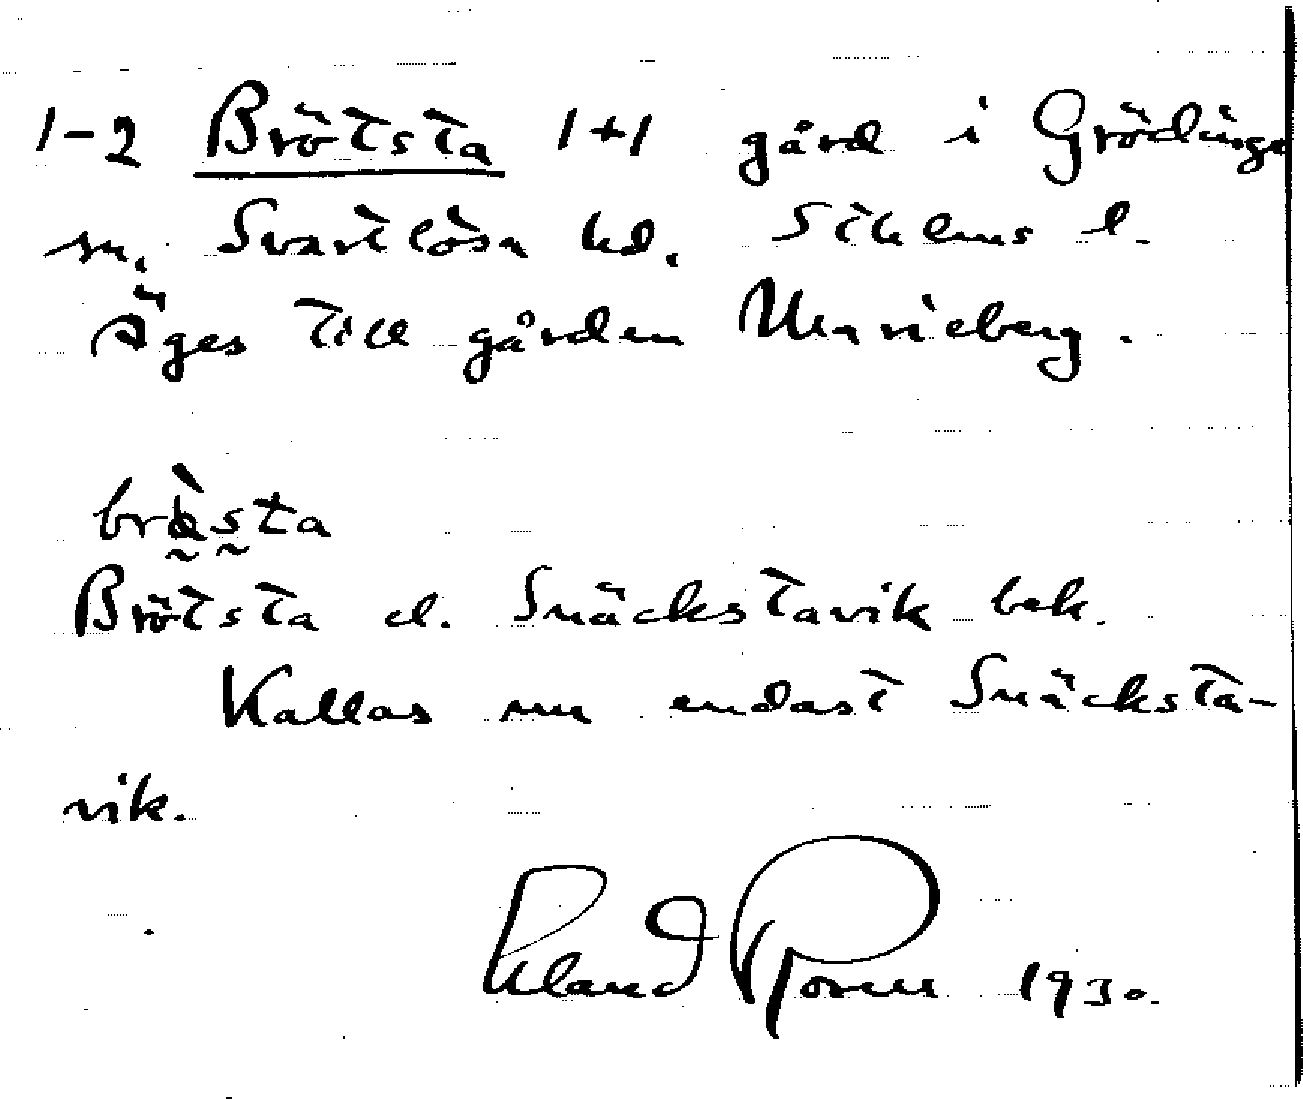 1-2 Brötsta 1+1 gård i Grödinge
sn. Svartlösa hd. Sthlms l.
Äges till gården Marieberg.
Brötsta el. Snäckstavik bek.
Kallas nu endast Snäcksta-
vik.
1930.